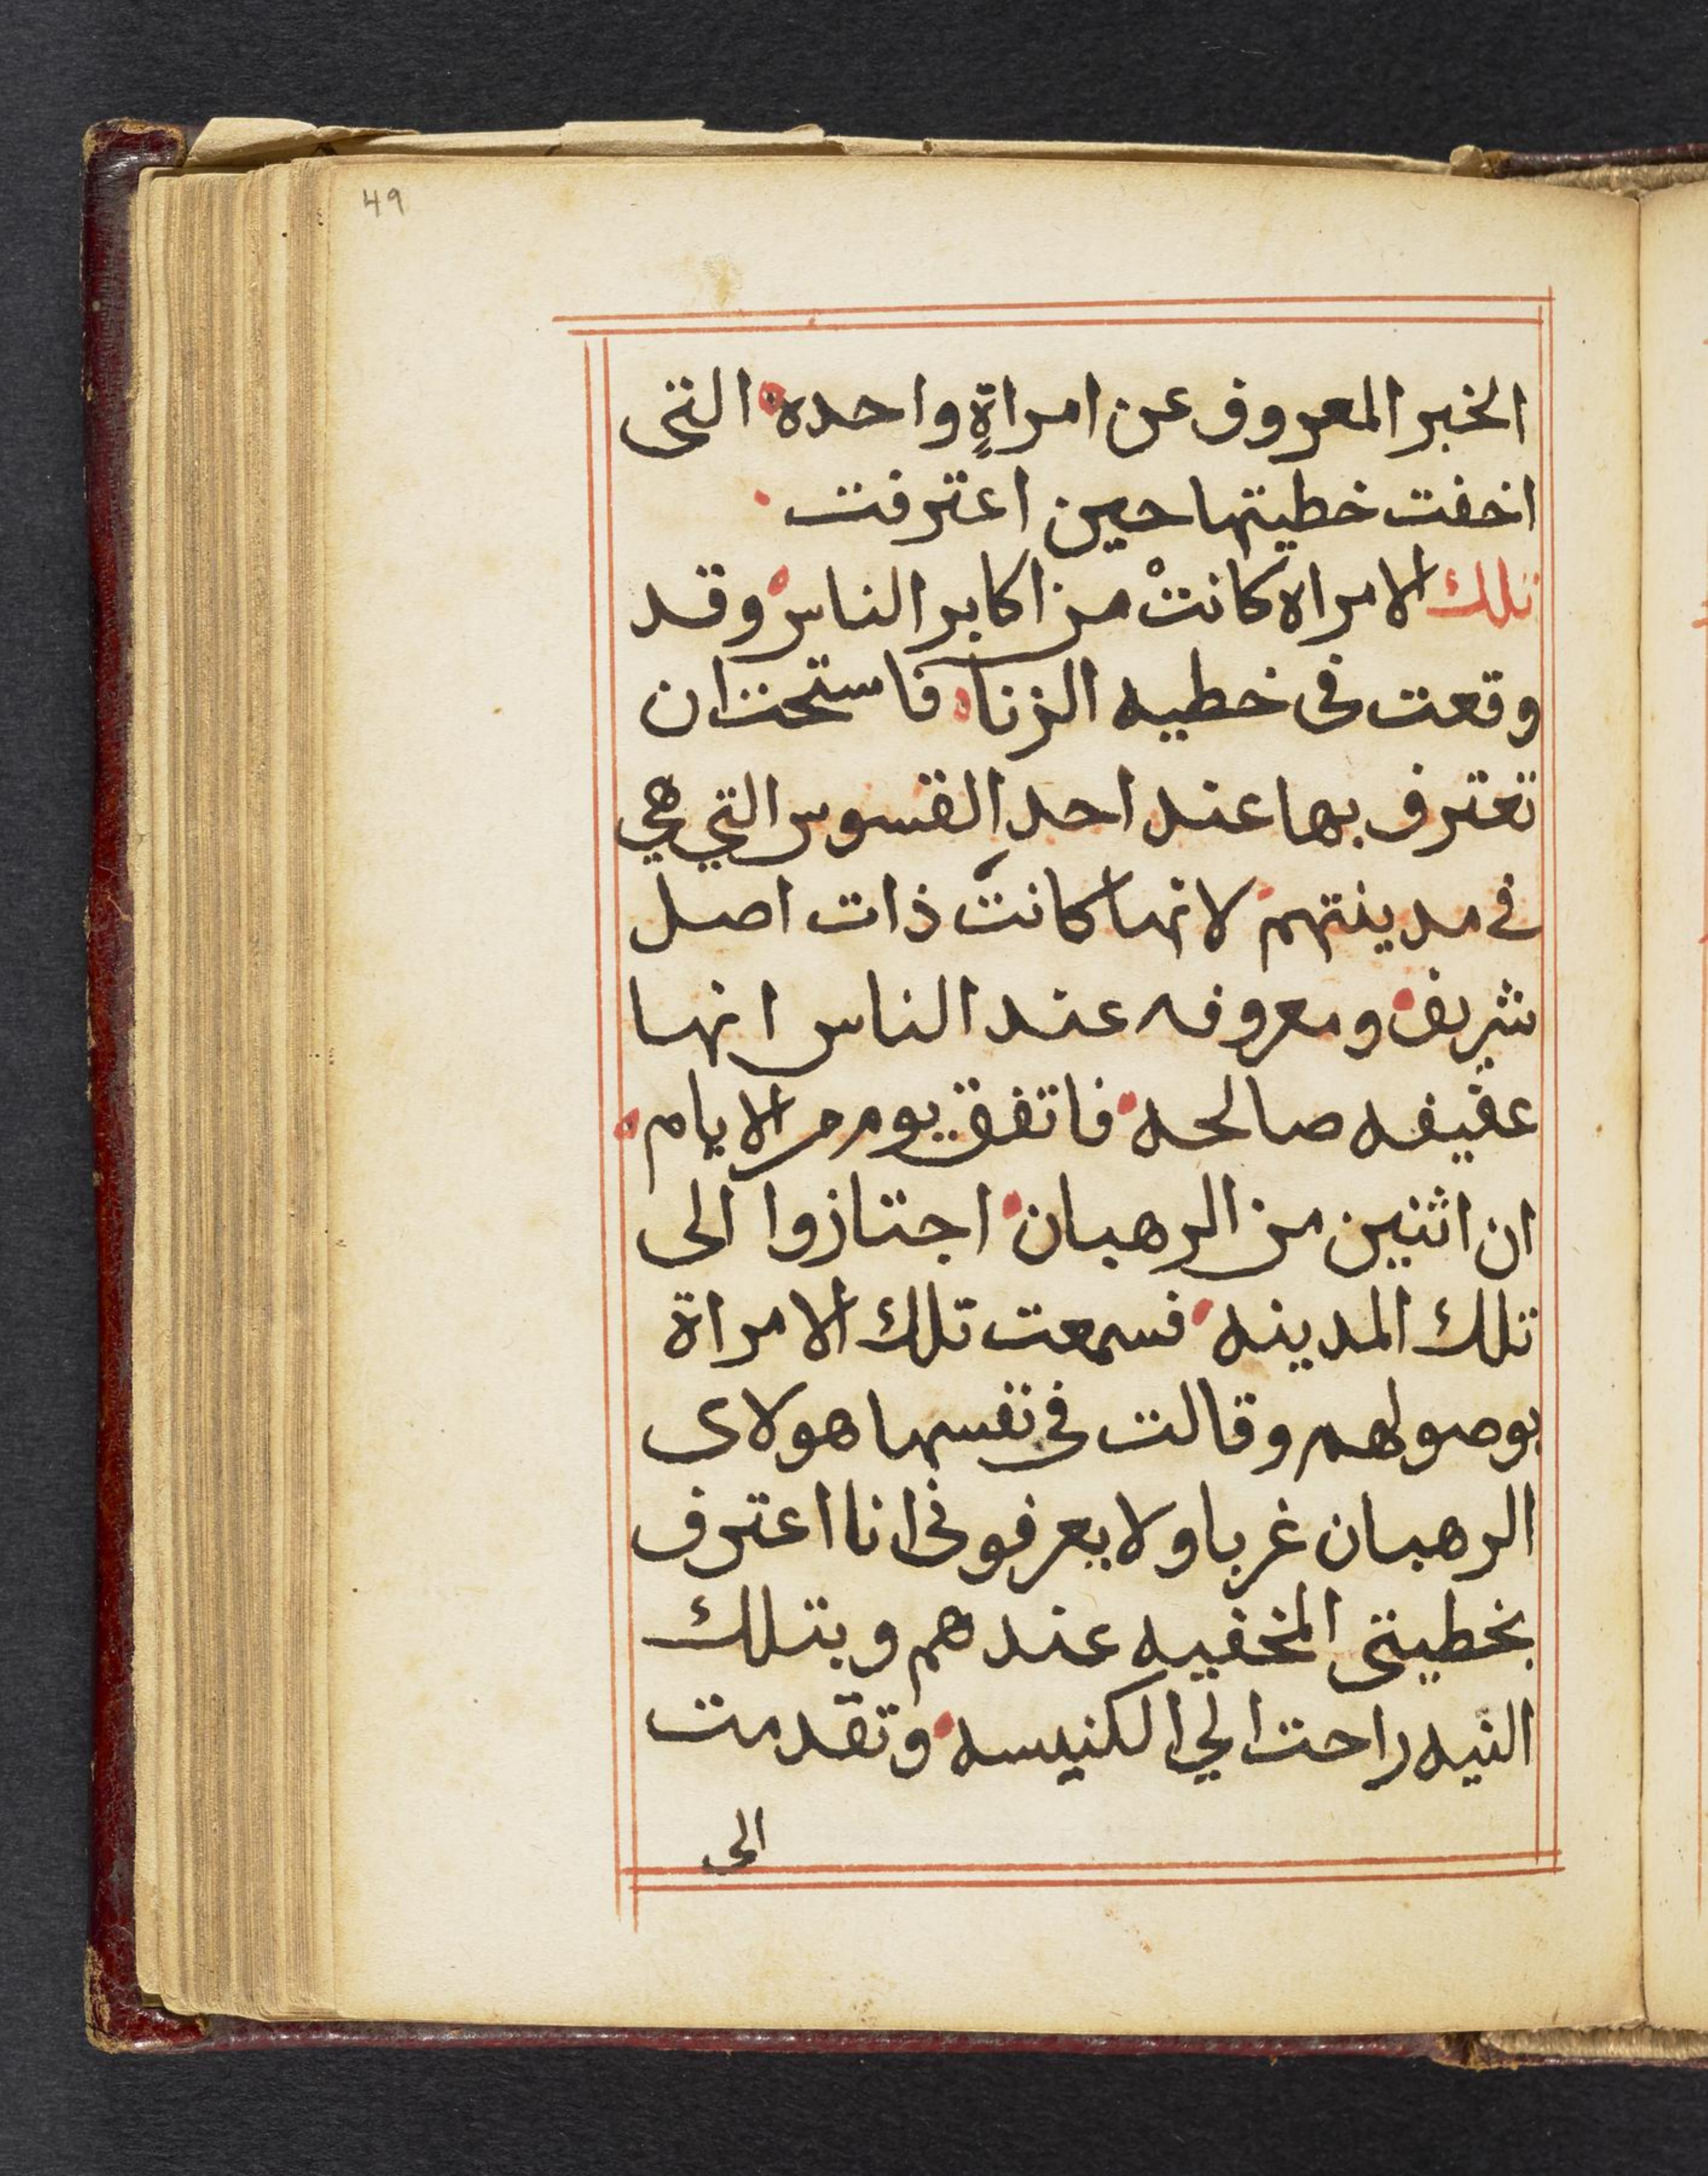 49
الخبر المعروف عن امراةٍ واحده التى
اخفت خطيتها حين اعترفت
تلك الامراه كانتْ من اكابر الناس وقد
وقعت فى خطيه الزنا فاستحت ان
تعترف بها عند احدِ القسوس التي هي
في مدينتهم لانها كانتَ ذات اصل
شريف ومعروفه عند الناس انها
عفيفه صالحه فاتفق يوم من الايام
ان اثنين من الرهبان اجتازوا الى
تلك المدينه فسمعت تلك الامراة
بوصولهم وقالت في نفسها هولاى
الرهبان غربا ولا يعرفونى انا اعترف
بخطيتى المخفيه عندهم وبتلك
النيه راحت الي الكنيسه وتقدمت
الى